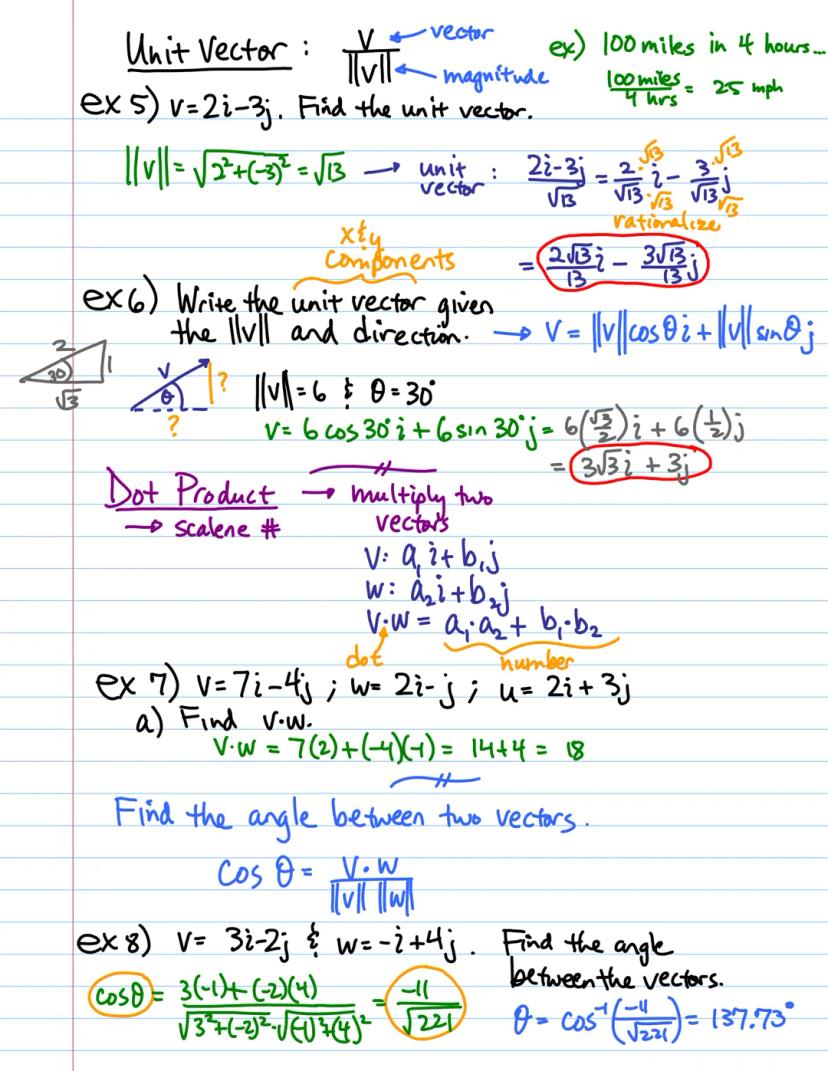 Unit Vector : V/||v|| ← vector ← magnitude
ex) 100 miles in 4 hours...
100 miles/4 hrs = 25 mph
ex 5) v=2i-3j. Find the unit vector.
||v|| = √(2²+(-3)²) = √13 → unit vector : (2i-3j)/√13 = 2/√13 ·√13/·√13 i - 3/√13 ·√13/·√13 j
rationalize
= 2√13/13 i - 3√13/13 j
x & y
components
ex 6) Write the unit vector given
the ||v|| and direction. → V = ||v||cosθ i + ||v|| sinθ j
2 30 1 √3
V θ ? ?
||v|| = 6 & θ = 30°
V = 6 cos 30° i + 6 sin 30° j = 6(√3/2) i + 6(1/2) j
= 3√3 i + 3j
Dot Product → multiply two
vectors
→ scalene #
V: a₁i + b₁j
W: a₂i + b₂j
V·W = a₁·a₂ + b₁·b₂
dot number
ex 7) V=7i-4j ; W= 2i-j ; u= 2i+3j
a) Find v·w.
V·W = 7(2)+(-4)(-1) = 14+4 = 18
Find the angle between two vectors.
Cos θ = V·W/||v|| ||w||
ex 8) V= 3i-2j & W=-i+4j. Find the angle
between the vectors.
cosθ = (3(-1)+(-2)(4))/(√(3²+(-2)²)·√((-1)²+(4)²)) = -11/√221
θ = cos⁻¹(-11/√221) = 137.73°